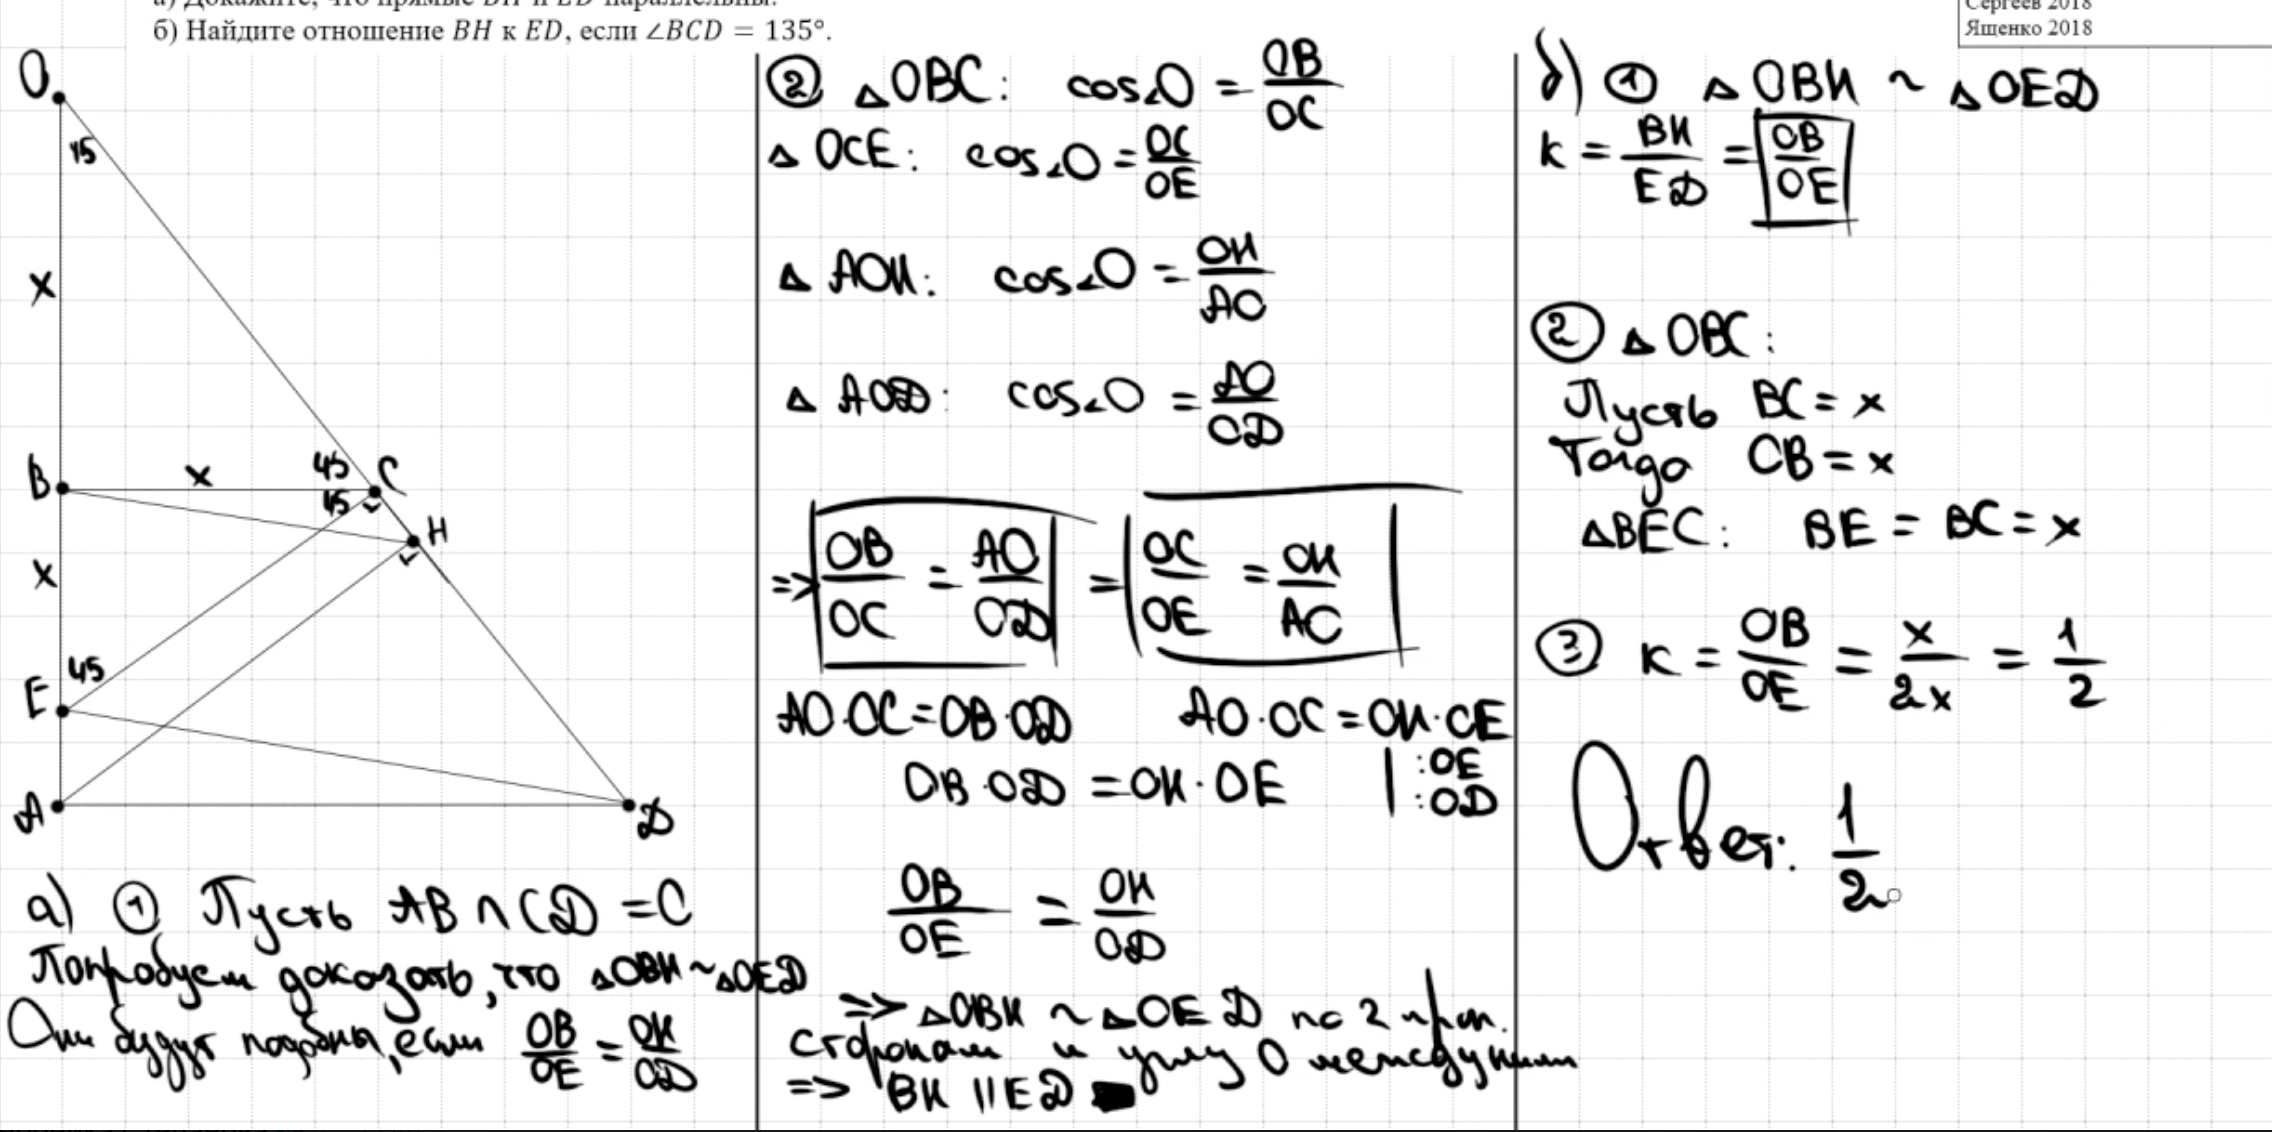 а) Докажите, что прямые BH и ED параллельны.
б) Найдите отношение BH к ED, если ∠BCD = 135°.
Сергеев 2018
Ященко 2018
O
45
x
B
x
45
C
45
H
x
E
45
A
D
а) ① Пусть AB ∩ CD = O
Попробуем доказать, что △OBH ~ △OED
Они будут подобны, если OB/OE = OH/OD
② △OBC: cos∠O = OB/OC
△OCE: cos∠O = OC/OE
△AOH: cos∠O = OH/AO
△AOD: cos∠O = AO/OD
=> OB/OC = AO/OD = OC/OE = OH/AO
AO·OC = OB·OD AO·OC = OH·OE
OB·OD = OH·OE | :OE :OD
OB/OE = OH/OD
=> △OBH ~ △OED по 2 проп.
сторонам и углу O между ними
=> BH || ED
б) ① △OBH ~ △OED
k = BH/ED = OB/OE
② △OBC:
Пусть BC = x
Тогда OB = x
△BEC: BE = BC = x
③ k = OB/OE = x/2x = 1/2
Ответ: 1/2